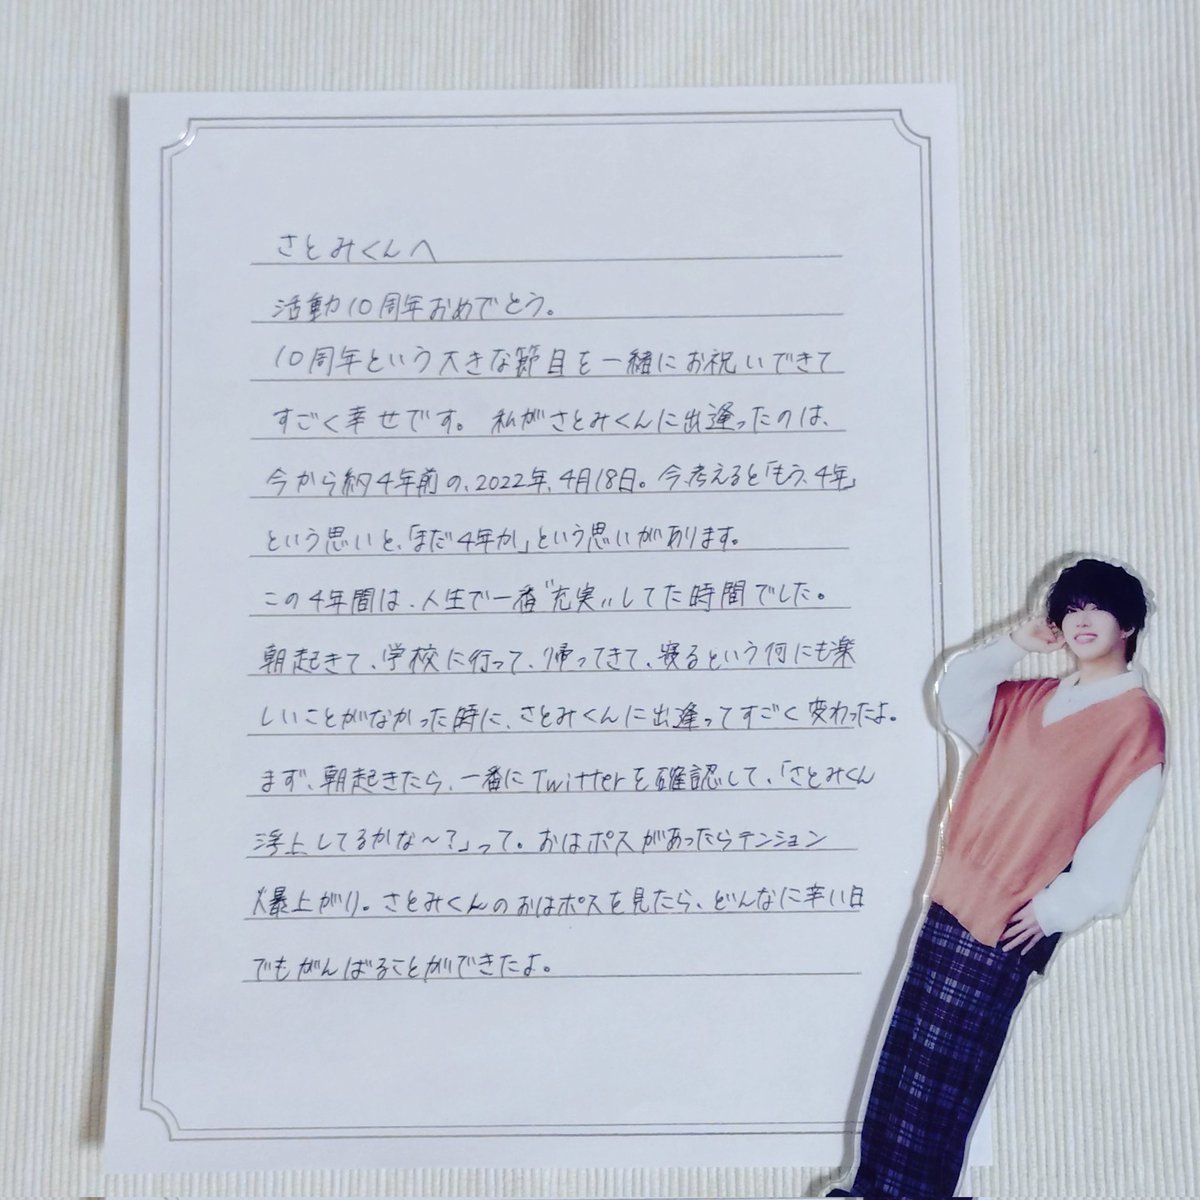 さとみくんへ
活動10周年おめでとう。
10周年という大きな節目を一緒にお祝いできて
すごく幸せです。私がさとみくんに出逢ったのは、
今から約4年前の、2022年、4月18日。今、考えると「もう、4年」
という思いと、「まだ4年か」という思いがあります。
この4年間は、人生で一番"充実"してた時間でした。
朝起きて、学校に行って、帰ってきて、寝るという何にも楽
しいことがなかった時に、さとみくんに出逢ってすごく変わったよ。
まず、朝起きたら、一番にTwitterを確認して、「さとみくん
浮上してるかな〜?」って。おはポスがあったらテンション
爆上がり。さとみくんのおはポスを見たら、どんなに辛い日
でもがんばることができたよ。